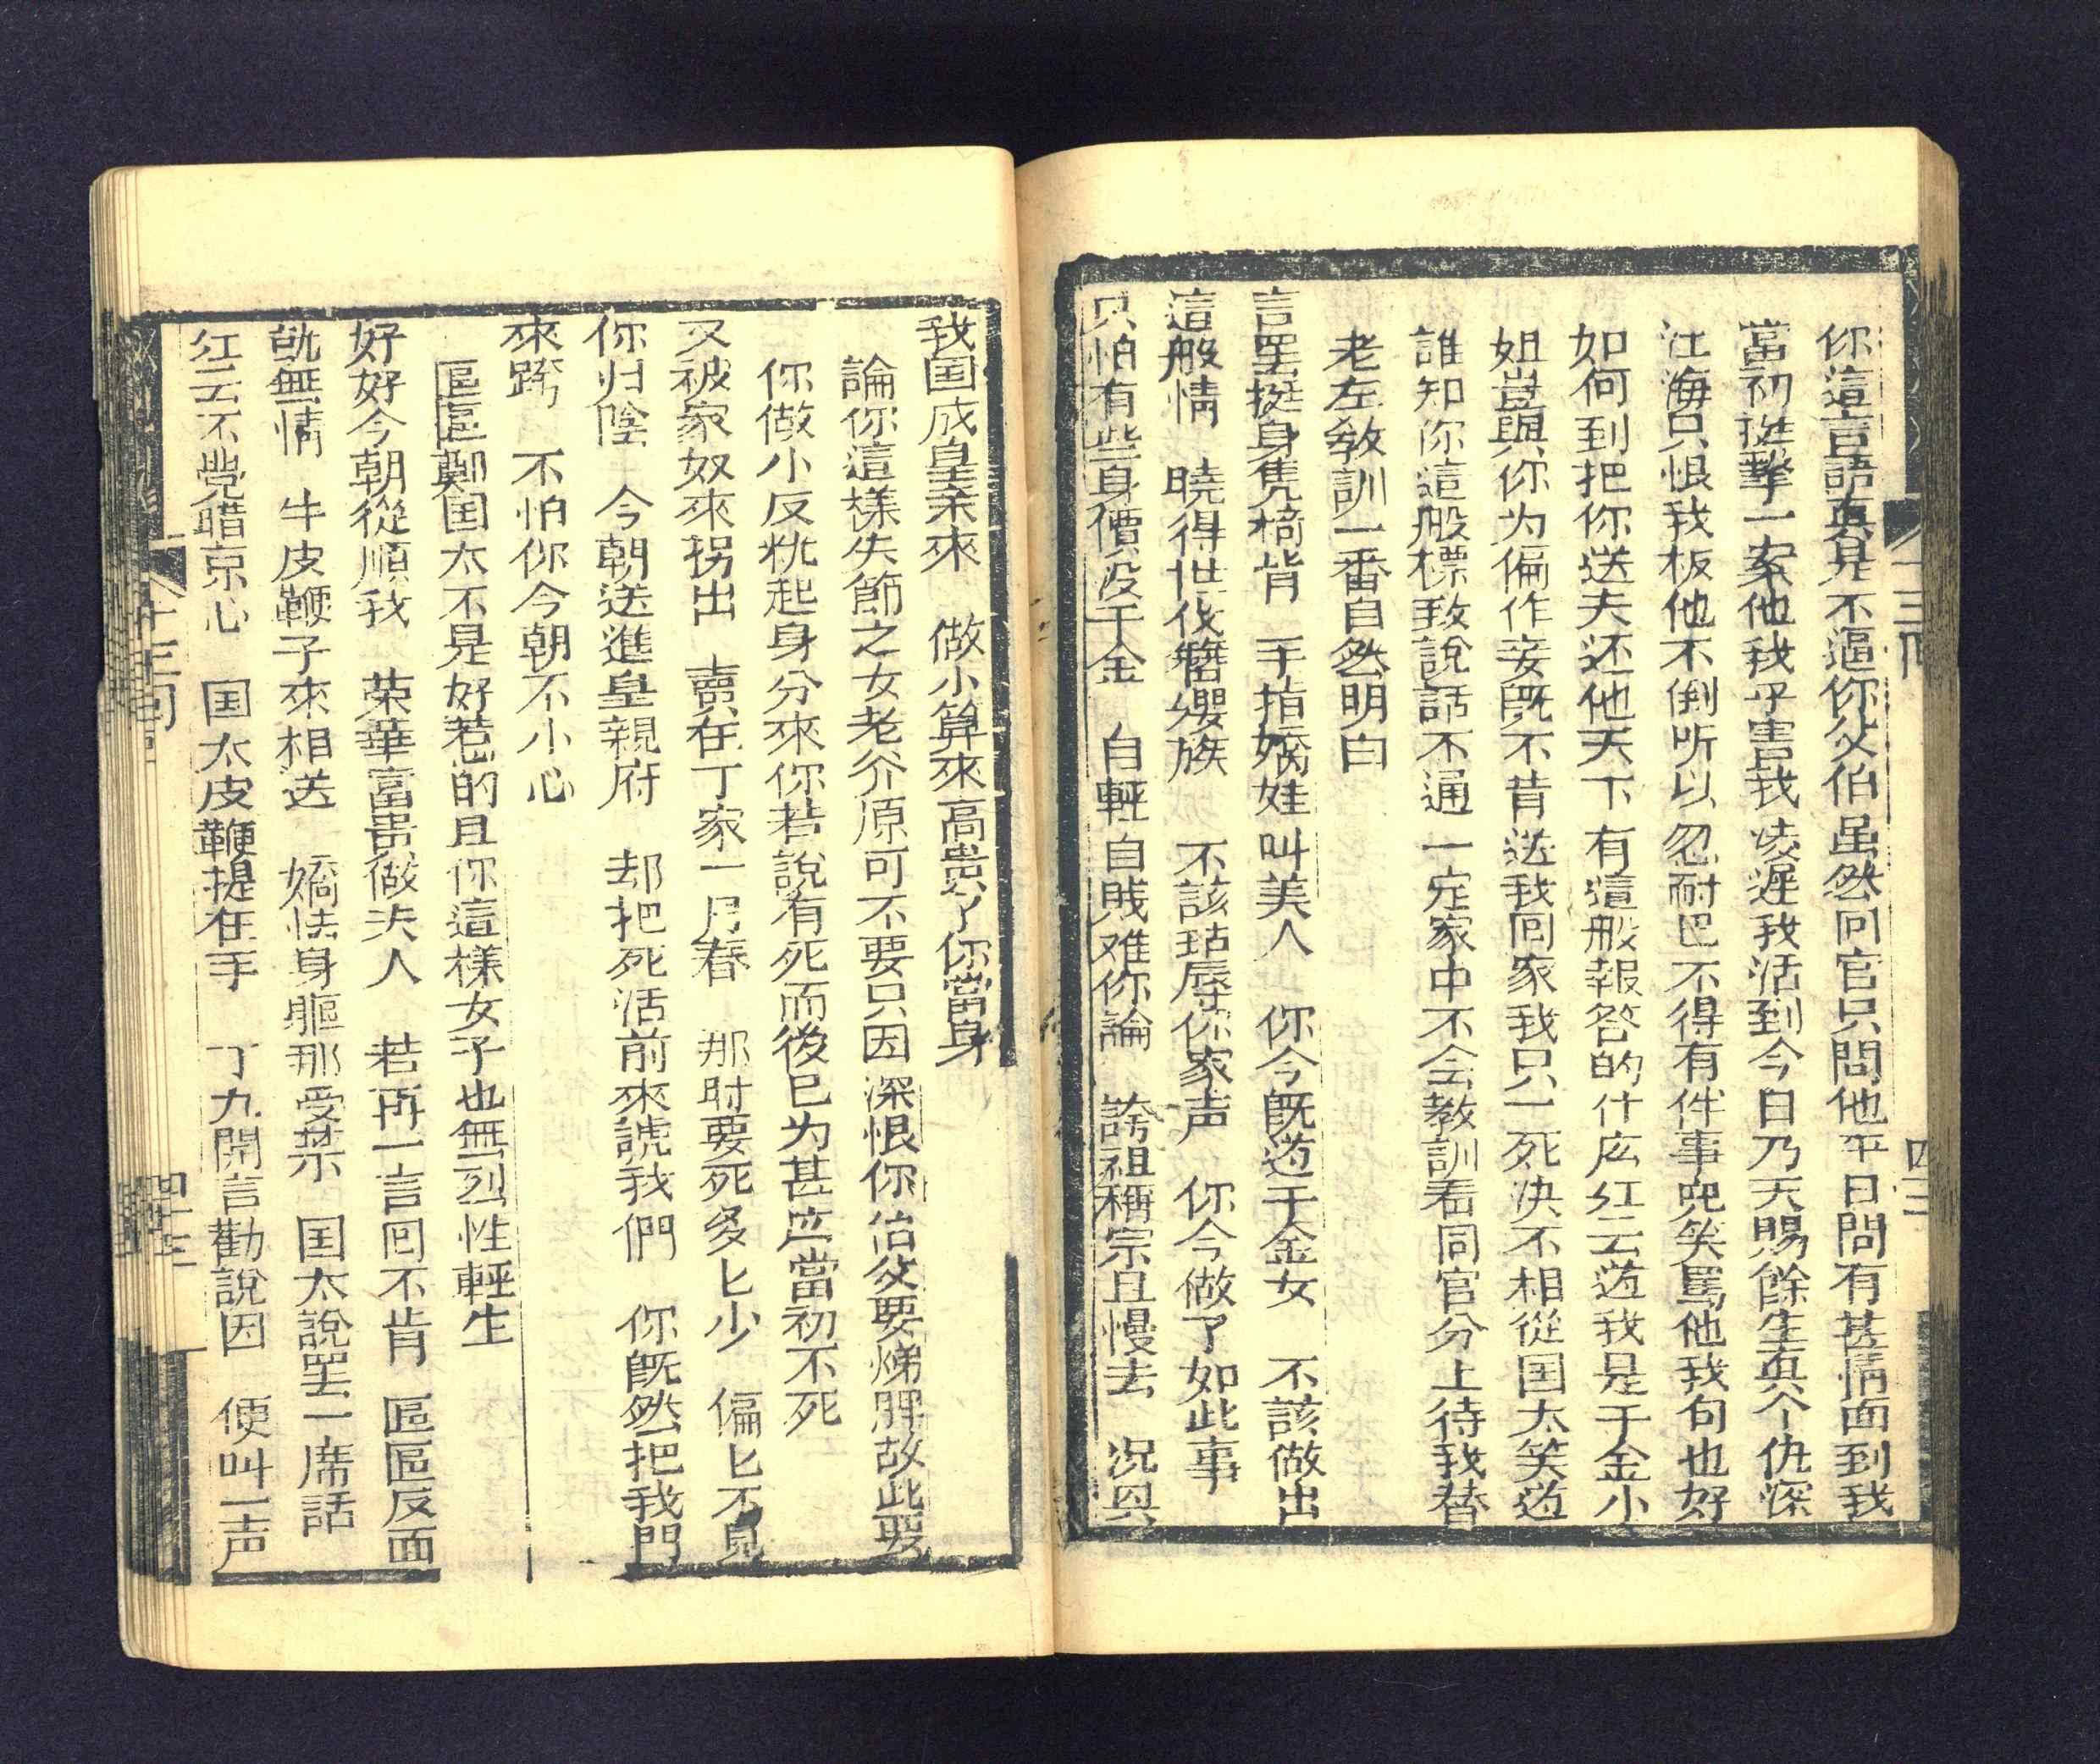 你這言語真是不通你父伯虽然同官只問他平日間有甚情面到我
當初挺擊一案他我乎害我凌遲我活到今日乃天賜餘生真个仇深
江海只恨我板他不倒所以忍耐巴不得有件事兜笑罵他我句也好
如何到把你送夫还他天下有這般報答的什庅红云道我是千金小
姐豈與你为偏作妾既不肯送我回家我只一死决不相從国太笑道
誰知你這般標致說話不通一定家中不会教訓看同官分上待我替
老左教訓一番自然明白
言罢挺身凭椅背 手指嬌娃叫美人 你今既道千金女 不該做出
這般情 曉得世代簪纓族 不該玷辱你家声 你今做了如此事
只怕有些身價没千金 自輕自賎难你論 誇祖稱宗且慢去 况與
我国成皇亲來 做小算來高贵了你當身
論你這樣失節之女老爷原可不要只因深恨你伯父要 故此要
你做小反 起身分來你若說有死而後已为甚庅當初不死
又被家奴來拐出 賣在丁家一月春 那时要死多匕少 偏匕不見
你归陰 今朝送進皇親府 却把死活前來諕我們 你既然把我門
來跨 不怕你今朝不小心
區區鄭国太不是好惹的且你這樣女子也無烈性輕生
好好今朝從順我 荣華富贵做夫人 若再一言回不肯 區區反面
就無情 牛皮鞭子來相送 嬌怯身軀那受禁 国太說罢一席話
红云不覺暗京心 国太皮鞭提在手 丁九開言勸說因 便叫一声
十三回
四三
十三回
四三